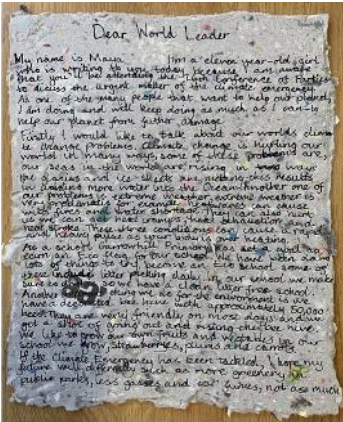 Dear World Leader
My name is Maya I'm a eleven year-old girl
who is writing to you today because I am aware
that you'll be attending the Conference of Parties
to discuss the urgent matter of the climate emergency.
As one of the many people that want to help our planet,
I am doing and will keep doing as much as I can to
help our planet from further damage
Firstly I would like to talk about our worlds climate
change problems. Climate change is hurting our
world in many ways, some of these problems are,
our seas in the world are rising in ways
the glaciers and ice sheets are melting this results
in adding more water into the Ocean. Another one of
our problems is extreme weather, extreme weather is
very problematic for example heatwaves can cause
wildfires and water shortage. They can also hurt
us we can get heat cramps, heat exhaustion and
heat stroke. These
As a school Barrowhill Primary
Eco Flag for our school. We have been doing
lots of things to become an Eco school some of
these include litter picking daily in our school we make
sure we have a clean litter free school.
Another for the environment is we
have a dedicated bee hive with approximately 50,000
bees. They are very friendly on most days and we
got a shot of going out and visiting the bee hive.
We like to grow our own fruits and vegetables in our
school we grow Strawberries, plums and carrots.
If the Climate Emergency has been tackled I hope my
future will differently such as more greenery in
public parks, less gasses and car fumes, not as much